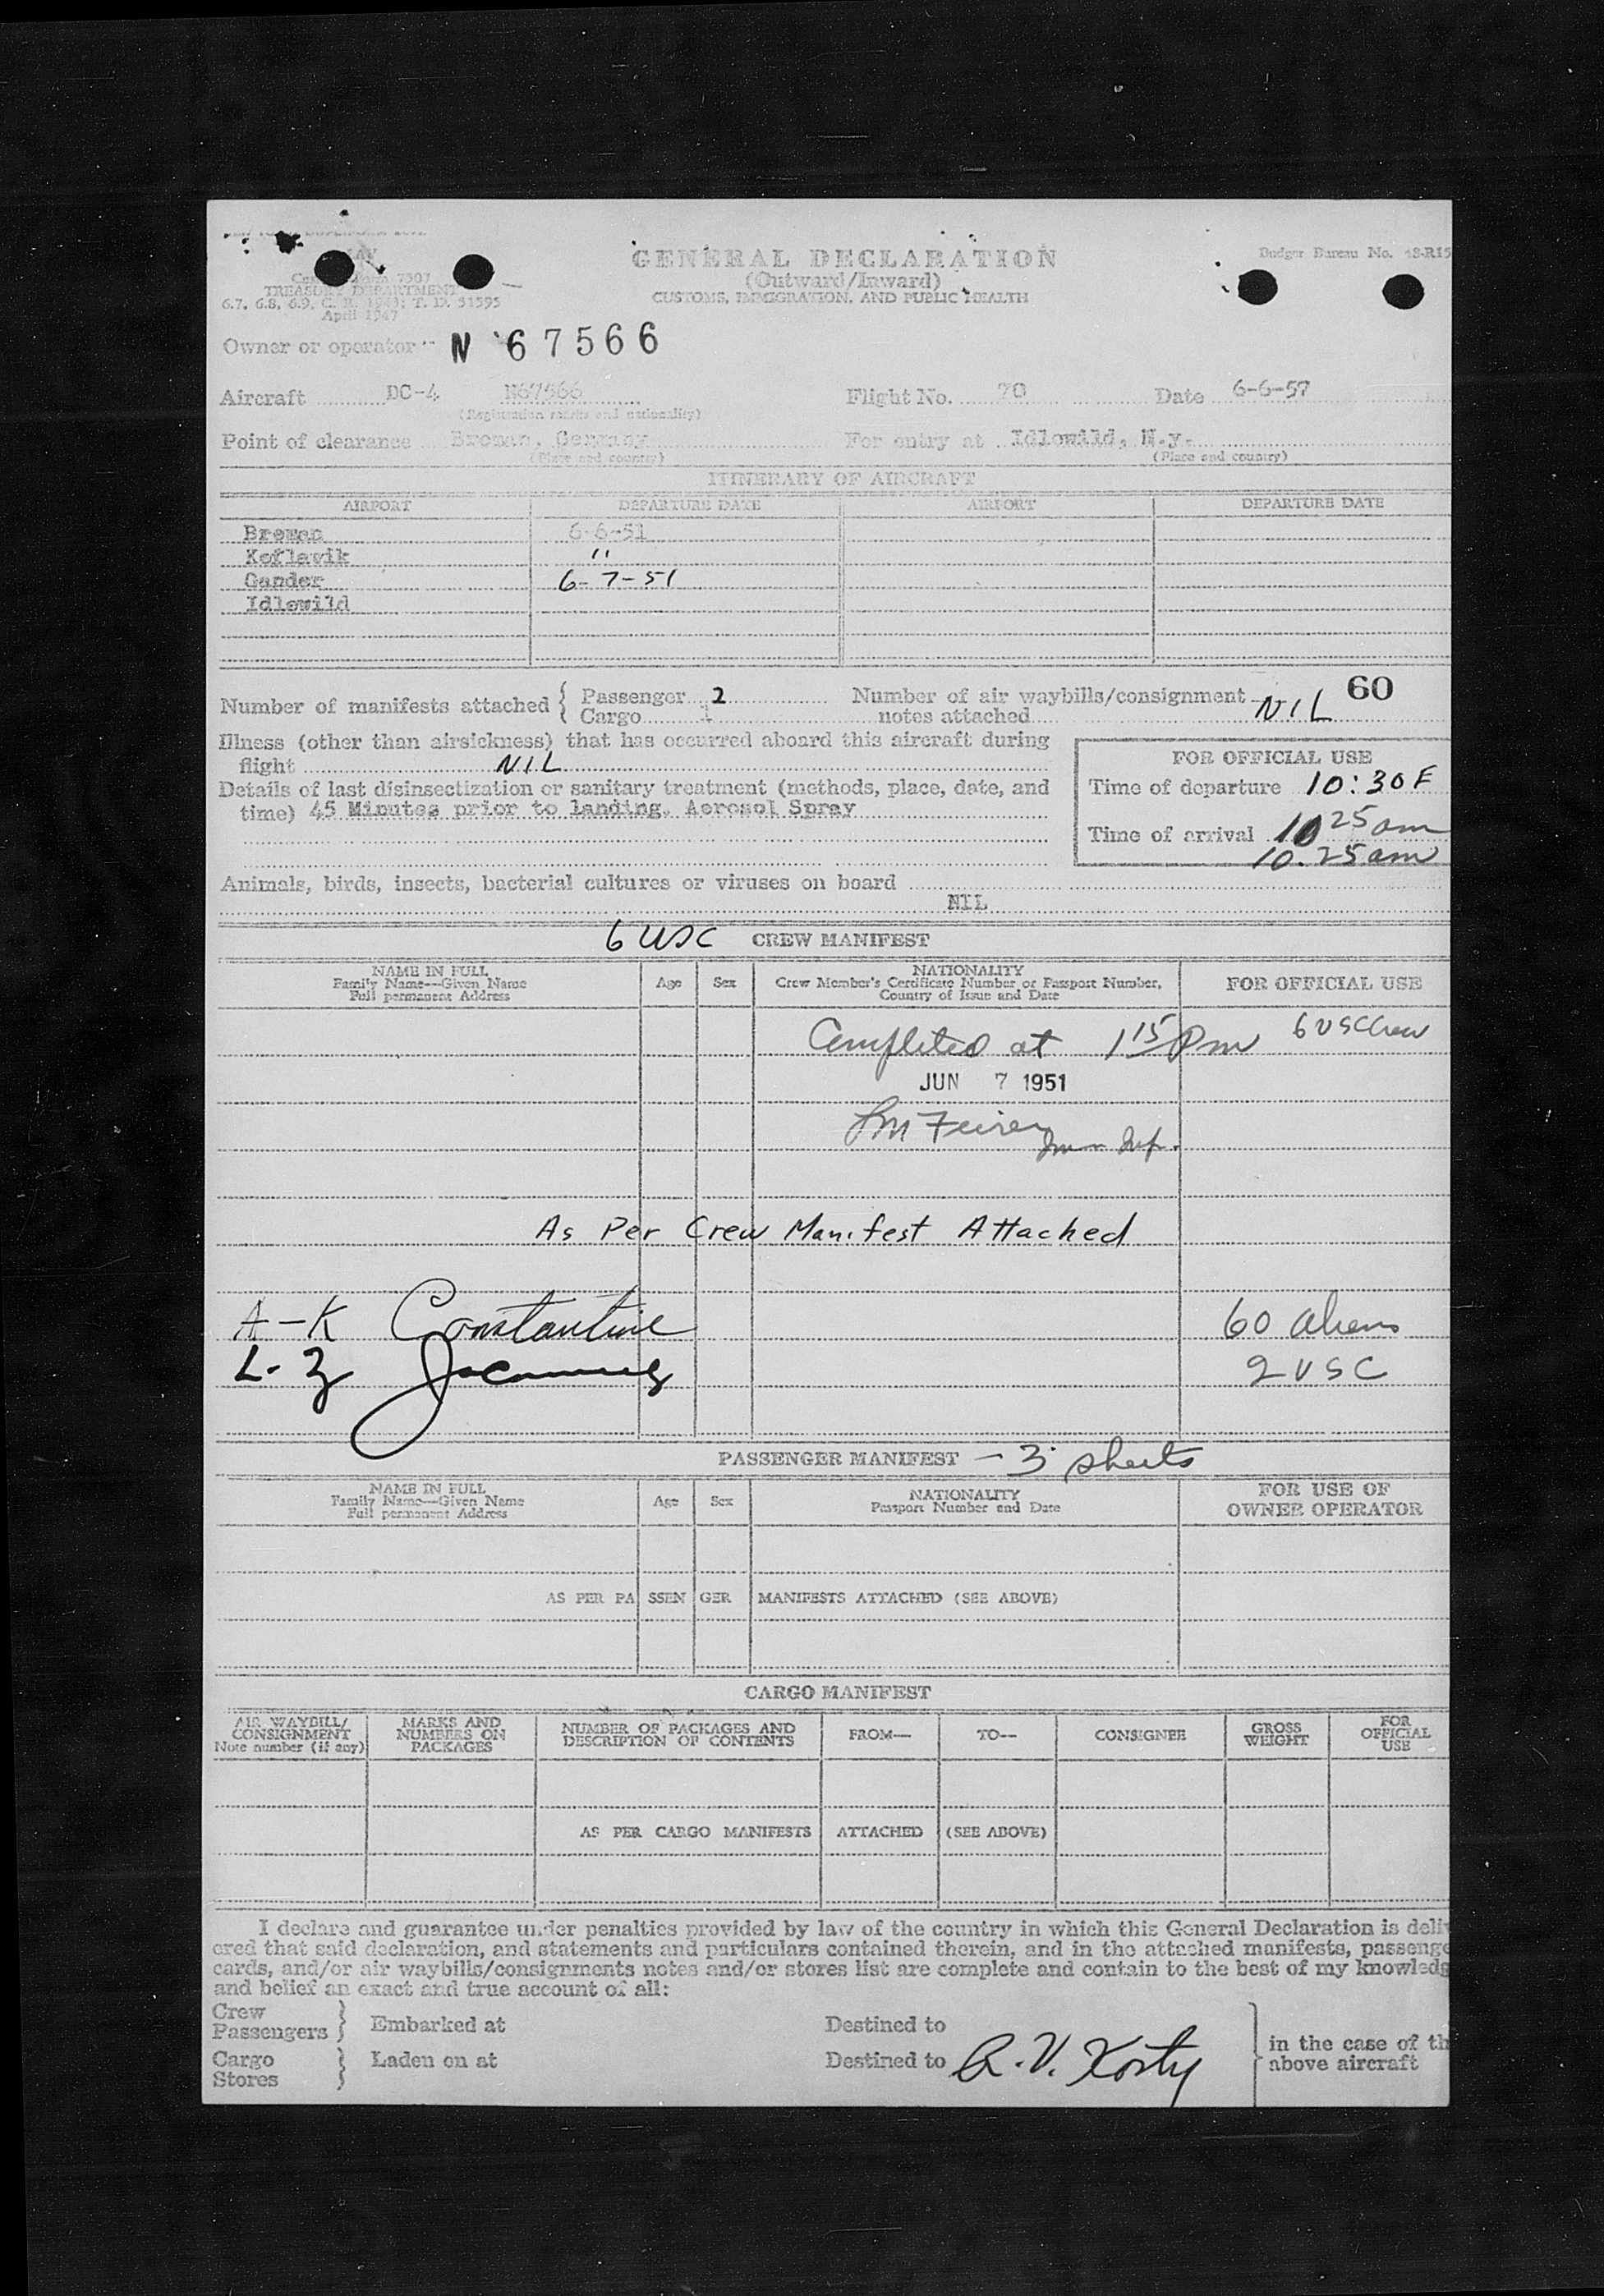 GENERAL DECLARATION
(Outward/Inward)
CUSTOMS, IMMIGRATION, AND PUBLIC HEALTH
Budget Bureau No. 48-R15
Form 7507
TREASURY DEPARTMENT
6.7, 6.8, 6.9, C. R. 1943; T. D. 51595
April 1947
Owner or operator N 67566
Aircraft DC-4 N67566 Flight No. 70 Date 6-6-57
(Registration marks and nationality)
Point of clearance Bremen, Germany For entry at Idlewild, N.y.
(Place and country) (Place and country)
ITINERARY OF AIRCRAFT
AIRPORT DEPARTURE DATE AIRPORT DEPARTURE DATE
Bremen 6-6-51
Keflavik "
Gander 6-7-51
Idlewild
Number of manifests attached { Passenger 2 Number of air waybills/consignment 60
Cargo 1 notes attached NIL
Illness (other than airsickness) that has occurred aboard this aircraft during
flight NIL
Details of last disinsectization or sanitary treatment (methods, place, date, and
time) 45 Minutes prior to landing. Aerosol Spray
FOR OFFICIAL USE
Time of departure 10:30 F
Time of arrival 10 25 am
10.25 am
Animals, birds, insects, bacterial cultures or viruses on board
NIL
6 USC CREW MANIFEST
NAME IN FULL Age Sex NATIONALITY FOR OFFICIAL USE
Family Name—Given Name Crew Member's Certificate Number or Passport Number,
Full permanent Address Country of Issue and Date
Completed at 1 15 Pm 6 USC Crew
JUN 7 1951
As Per Crew Manifest Attached
A-K Constantine 60 aliens
L-Z 2 USC
PASSENGER MANIFEST - 3 sheets
NAME IN FULL Age Sex NATIONALITY FOR USE OF
Family Name—Given Name Passport Number and Date OWNER OPERATOR
Full permanent Address
AS PER PA SSEN GER MANIFESTS ATTACHED (SEE ABOVE)
CARGO MANIFEST
AIR WAYBILL/ MARKS AND NUMBER OF PACKAGES AND FROM— TO— CONSIGNEE GROSS FOR
CONSIGNMENT NUMBERS ON DESCRIPTION OF CONTENTS WEIGHT OFFICIAL
Note number (if any) PACKAGES USE
AS PER CARGO MANIFESTS ATTACHED (SEE ABOVE)
I declare and guarantee under penalties provided by law of the country in which this General Declaration is deliv
ered that said declaration, and statements and particulars contained therein, and in the attached manifests, passenge
cards, and/or air waybills/consignments notes and/or stores list are complete and contain to the best of my knowledg
and belief an exact and true account of all:
Crew
Passengers } Embarked at Destined to
Cargo } Laden on at Destined to
Stores
in the case of th
above aircraft